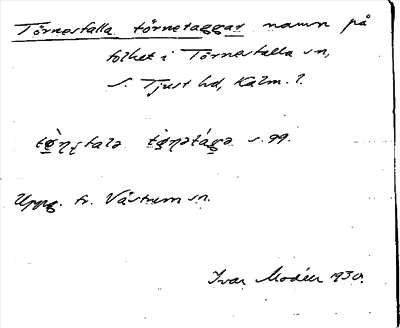 Törnesfalla törnetaggar namn på
folket i Törnesfalla sn,
S. Tjust hd, Kalm. l.
s. 99.
Uppg. fr. Västrum sn.
Ivar Modéer 1930.